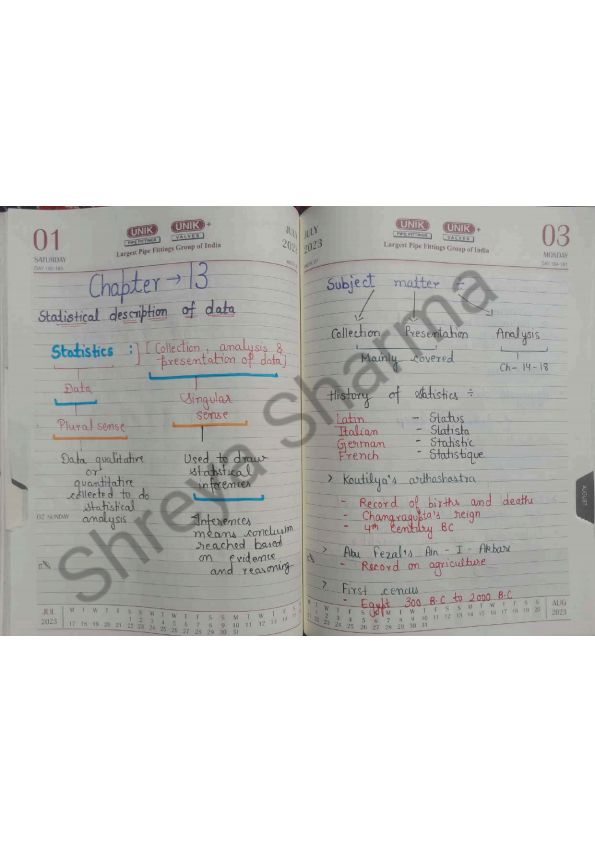 01
SATURDAY
UNIK
PIPE FITTINGS
UNIK+
VALVES
Largest Pipe Fittings Group of India
JULY
2023
Chapter → 13
Statistical description of data
Statistics :
[Collection, analysis &
presentation of data]
Data
Singular
sense
Plural sense
Data qualitative
or
quantitative
collected to do
statistical
analysis
Used to draw
statistical
inferences
02 SUNDAY
Inferences
means conclusion
reached based
on evidence
and reasoning
JUL
2023
M T W T F S S M T W T F S S M T W T F S S
17 18 19 20 21 22 23 24 25 26 27 28 29 30 31
JULY
2023
UNIK
PIPE FITTINGS
UNIK+
VALVES
Largest Pipe Fittings Group of India
03
MONDAY
Subject matter ÷
Collection Presentation Analysis
Mainly covered
Ch - 14 - 18
History of statistics ÷
Latin - Status
Italian - Statista
German - Statistic
French - Statistique
> Koutilya's arthashastra
- Record of births and deaths
- Changragupta's reign
- 4th Century BC
> Abu Fezal's Ain - I - Akbari
- Record on agriculture
> First census
- Egypt 300 B.C to 2000 B.C
AUG
2023
AUGUST
Shreya Sharma